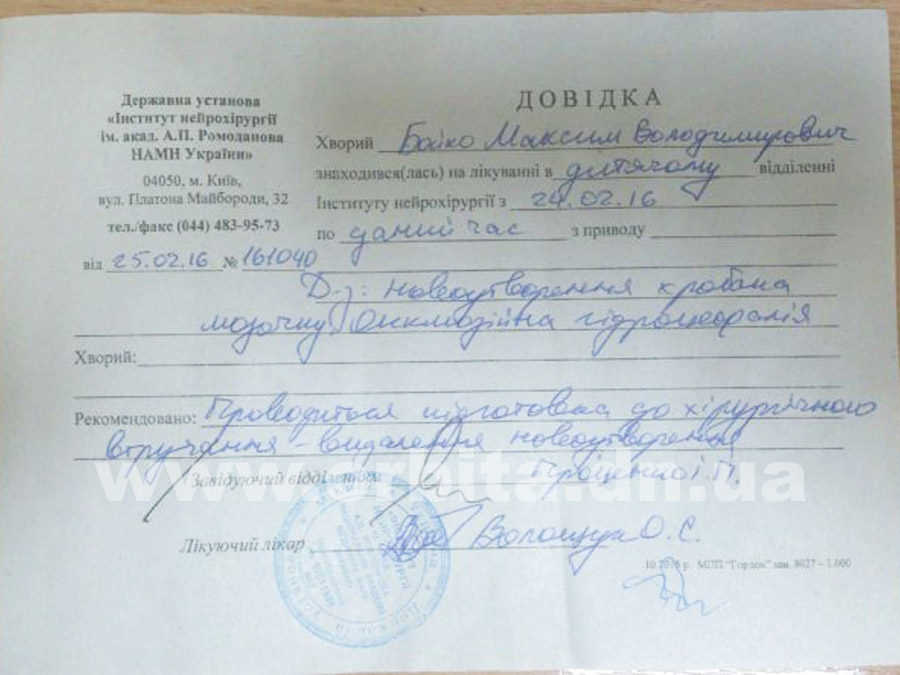 Державна установа
«Інститут нейрохірургії
ім. акад. А.П. Ромоданова
НАМН України»
04050, м. Київ,
вул. Платона Майбороди, 32
тел./факс (044) 483-95-73
від 25.02.16 № 161040
ДОВІДКА
Хворий Бойко Максим Володимирович
знаходився(лась) на лікуванні в дитячому відділенні
Інституту нейрохірургії з 24.02.16
по даний час з приводу
Д-з: Новоутворення хробака
мозочку. Оклюзійна гідроцефалія
Хворий:
Рекомендовано: Проводиться підготовка до хірургічного
втручання - видалення новоутворення
Завідуючий відділенням Проценко І.П.
Лікуючий лікар Волощук О.С.
10 2015 р. МПП "Гордон" зам. 8027 – 1.000
www.orbita.dn.ua